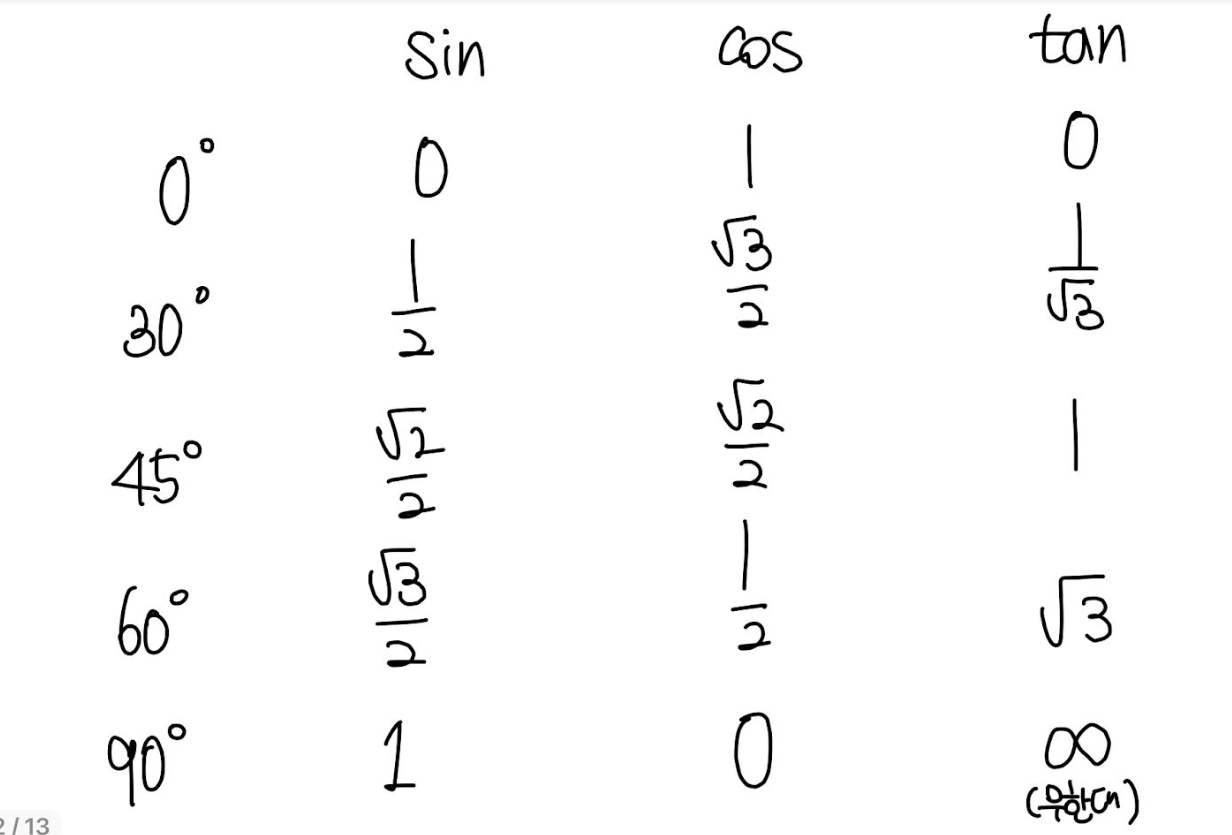 sin cos tan
0° 0 1 0
30° 1/2 √3/2 1/√3
45° √2/2 √2/2 1
60° √3/2 1/2 √3
90° 1 0 ∞
(무한대)
2/13